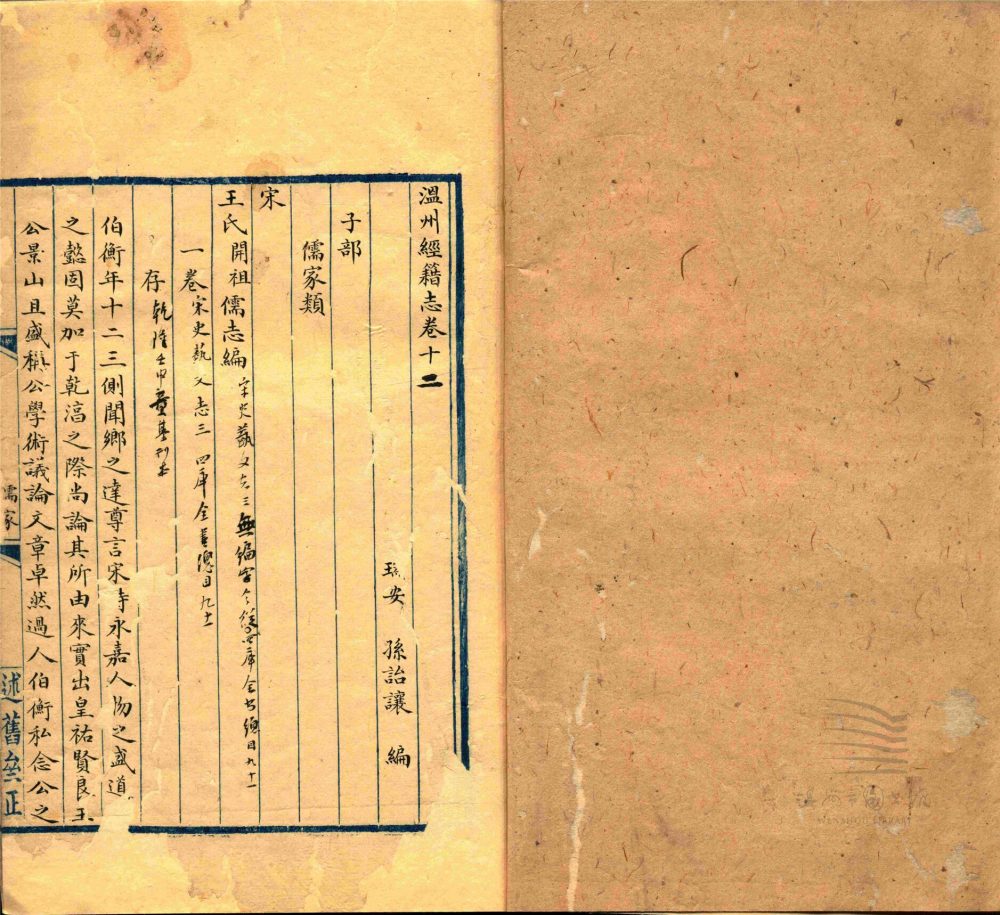 溫州經籍志卷十二
瑞安 孫詒讓 編
子部
儒家類
宋
王氏開祖儒志編 宋史藝文志三無編字今從四庫全書總目九十一
一卷 宋史藝文志三 四庫全書總目九十一
存 乾隆壬申刊本
伯衡年十二三側聞鄉之達尊言宋時永嘉人物之盛道
之懿固莫加于乾淳之際尚論其所由來實出皇祐賢良王
公景山且盛稱公學術議論文章卓然過人伯衡私念公之
儒家
述舊𠫵正
WENZHOU LIBRARY